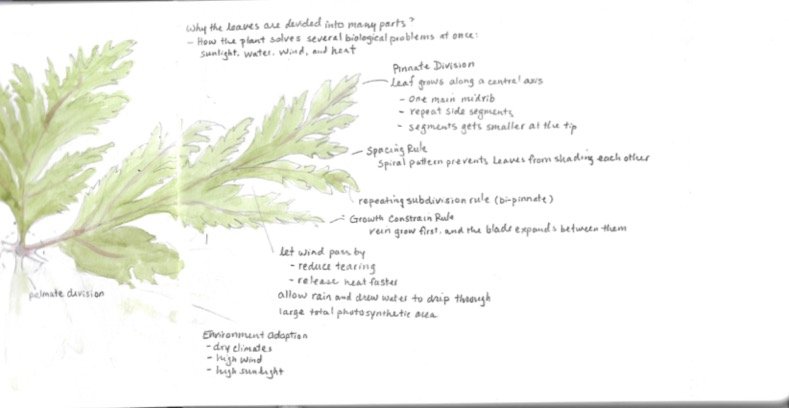 Why the leaves are devided into many parts?
- How the plant solves several biological problems at once:
sunlight. water. wind, and heat
Pinnate Division
leaf grows along a central axis
- one main midrib
- repeat side segments
- segments gets smaller at the tip
Spacing Rule
Spiral pattern prevents leaves from shading each other
repeating subdivision rule (bi-pinnate)
Growth Constrain Rule
vein grow first, and the blade expands between them
let wind pass by
- reduce tearing
- release heat faster
allow rain and drew water to drip through
large total photosynthetic area
palmate division
Environment adaption
- dry climates
- high wind
- high sunlight